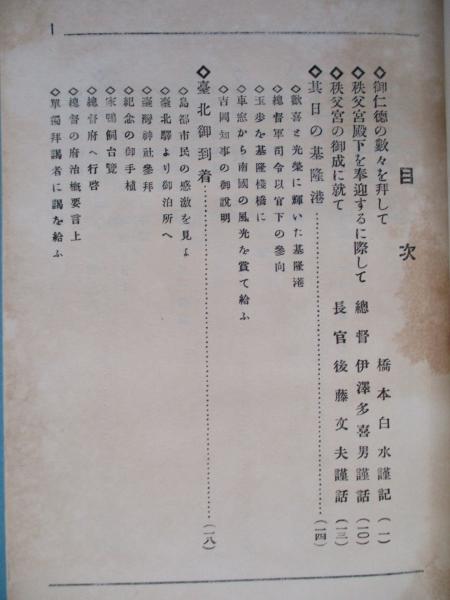 1
目次
◇御仁德の數々を拜して 橋本白水謹記 (一)
◇秩父宮殿下を奉迎するに際して 總督 伊澤多喜男謹話 (一〇)
◇秩父宮の御成に就て 長官 後藤文夫謹話 (一三)
◇其日の基隆港 (一四)
◇歡喜と光榮に輝いた基隆港
◇總督軍司令以官下の參向
◇玉步を基隆棧橋に
◇車窓から南國の風光を賞て給ふ
◇吉岡知事の御說明
◇臺北御到着 (一八)
◇島都市民の感激を見よ
◇臺北驛より御泊所へ
◇臺灣神社參拜
◇紀念の御手植
◇家鴨飼台覽
◇總督府へ行啓
◇總督の府治槪要言上
◇單獨拜謁者に謁を給ふ